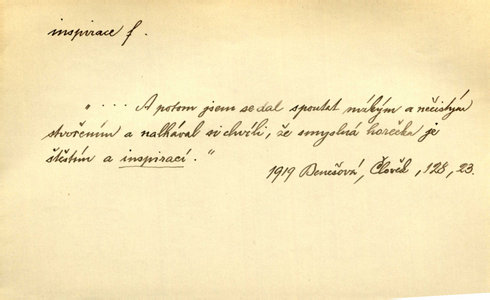 inspirace f.
„ . . . . A potom jsem se dal spoutat nízkým a nečistým
stvořením a nalhával si chvíli, že smyslná horečka je
štěstím a inspirací."
1919 Benešová, Člověk, 128, 23.